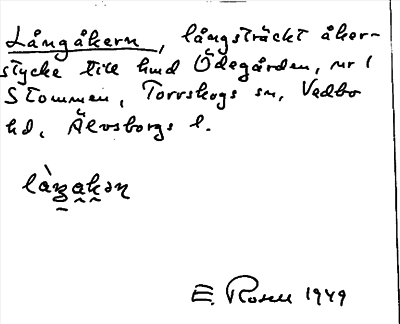 Långåkern, långsträckt åker-
stycke till hmd Ödegården, nr 1
Stommen, Torrskogs sn, Vedbo
hd, Älvsborgs l.
làŋakən
E. Rosell 1949